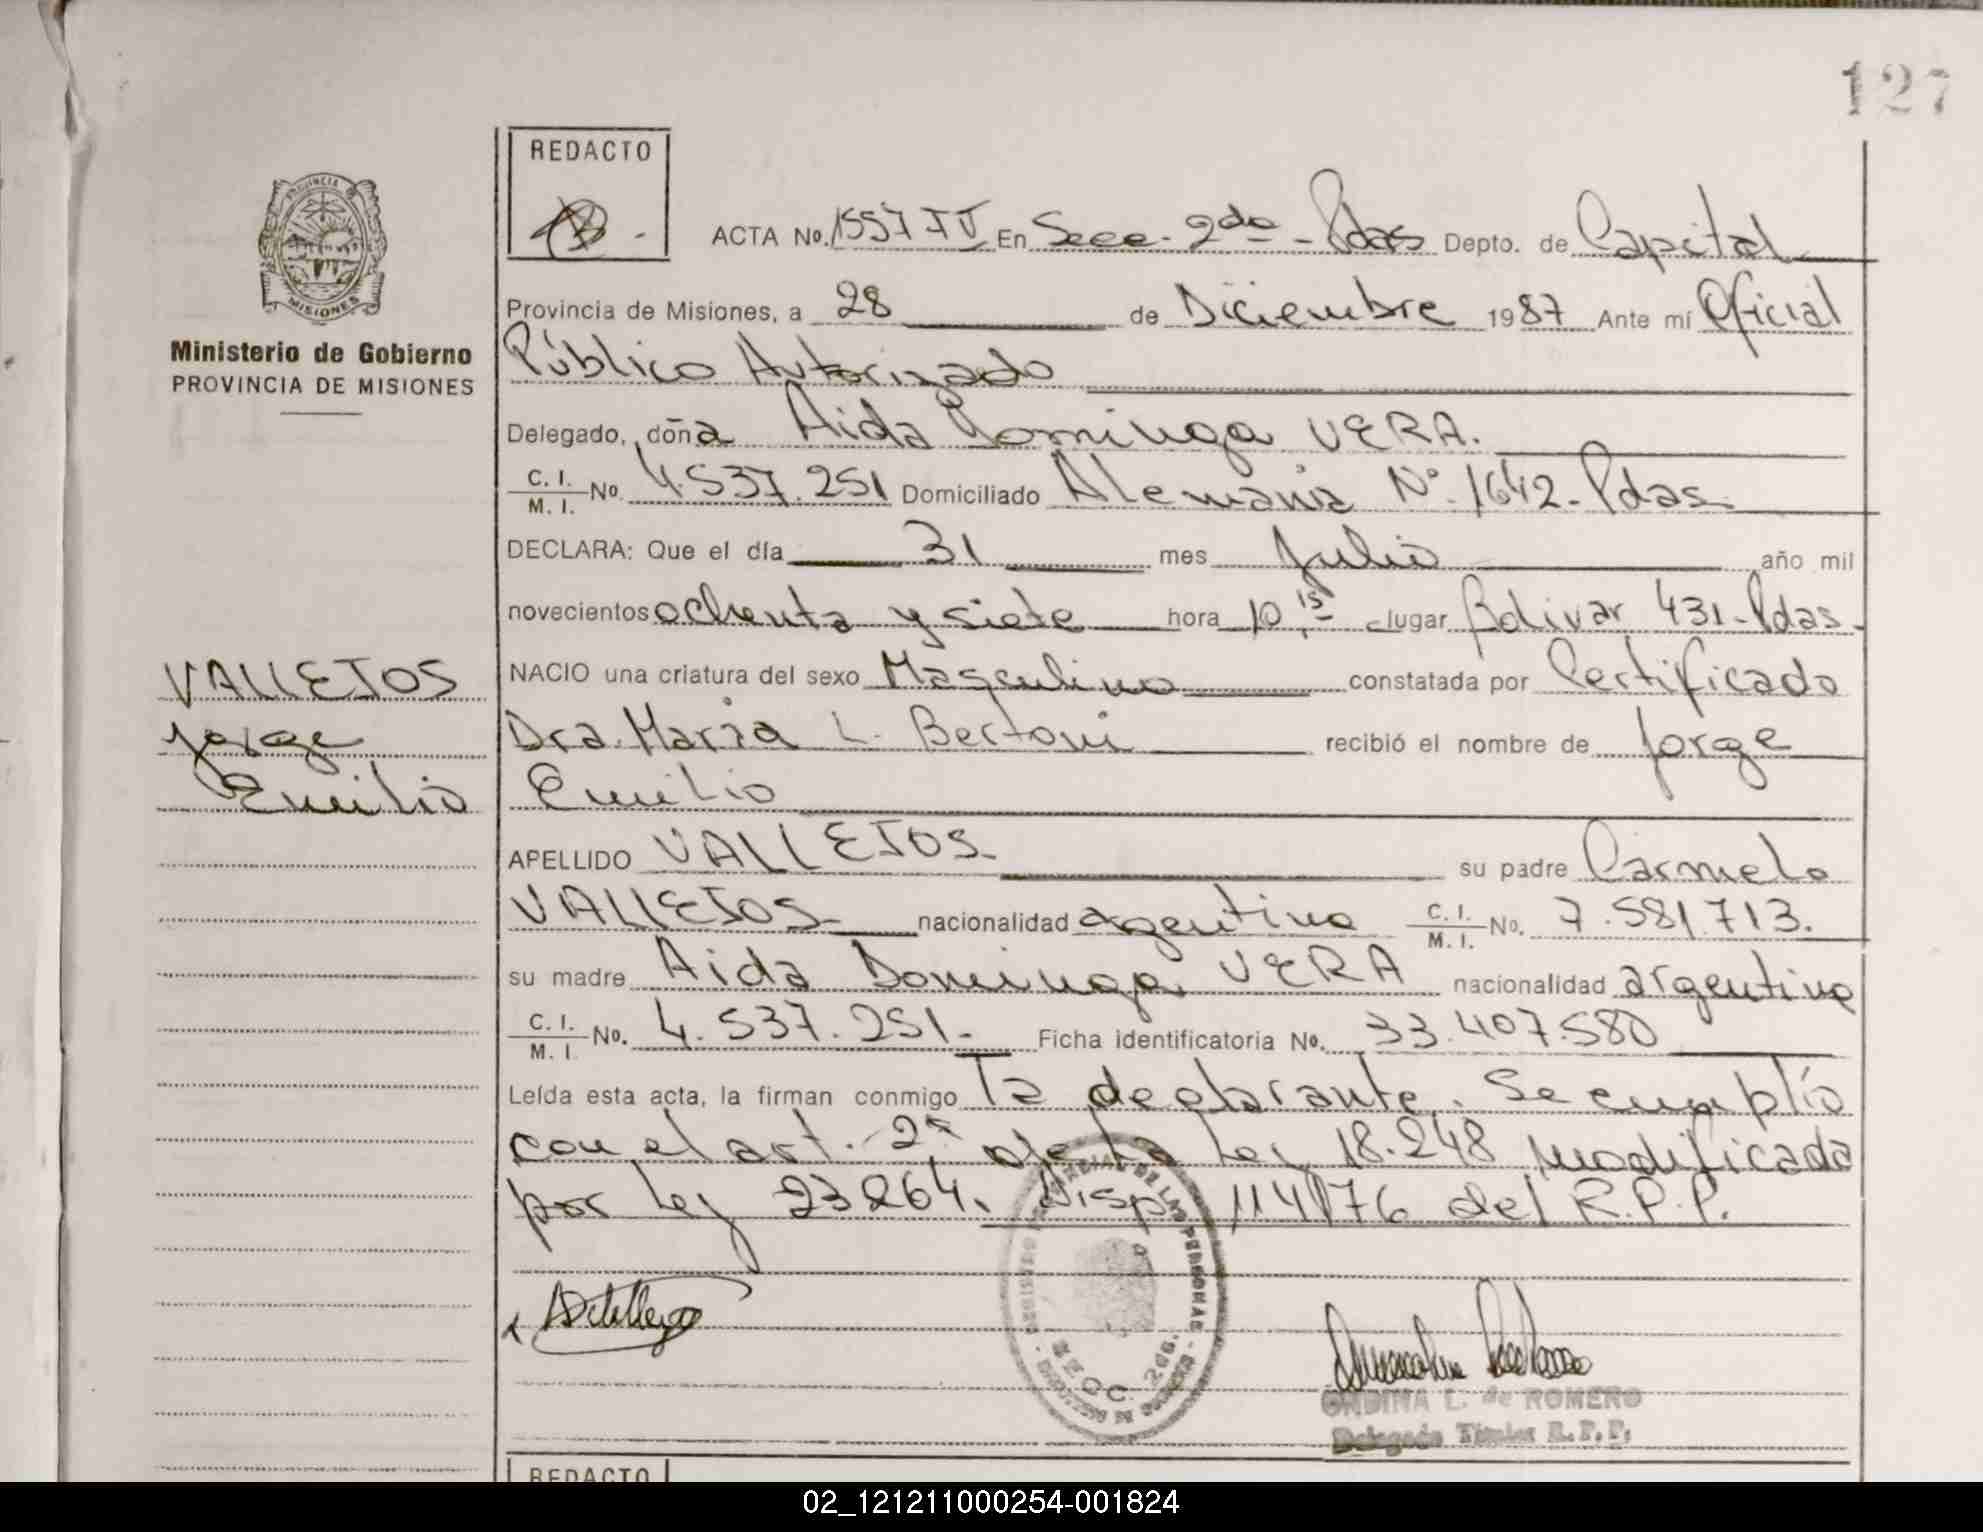 127
REDACTO
ACTA No. 1557 TV En Secc. 2da - Pdas Depto. de Capital
PROVINCIA
MISIONES
Provincia de Misiones, a 28 de Diciembre 1987 Ante mí Oficial
Ministerio de Gobierno
PROVINCIA DE MISIONES
Público Autorizado
Delegado, doña Aida Dominga VERA.
C. I.
M. I. No. 4.537.251 Domiciliado Alemania N° 1642 - Pdas.
DECLARA: Que el día 31 mes Julio año mil
novecientos ochenta y siete hora 10,15 lugar Bolivar 431 - Pdas.
VALLEJOS
NACIO una criatura del sexo Masculino constatada por Certificado
Jorge
Dra. Maria L. Bertoni recibió el nombre de Jorge
Emilio
Emilio
APELLIDO VALLEJOS. su padre Carmelo
VALLEJOS nacionalidad agentino C. I.
M. I. No. 7.581.713.
su madre Aida Dominga VERA nacionalidad argentina
C. I.
M. I. No. 4.537.251.- Ficha identificatoria No. 33.407.580
Leída esta acta, la firman conmigo la declarante. Se cumplió
con el art. 2° de la Ley 18.248 modificada
por Ley 23264. Disp. 114/76 del R.P.P.
DE LAS PERSONAS
ONDINA L. de ROMERO
Delegado Titular R.P.P.
REDACTO
02_121211000254-001824